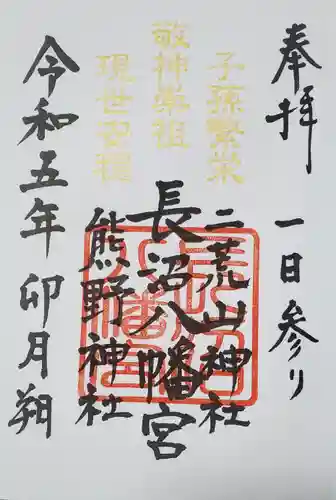 奉拝 一日参り
子孫繁栄
敬神崇祖
現世安穏
二荒山神社
長沼八幡宮
熊野神社
令和五年 卯月朔